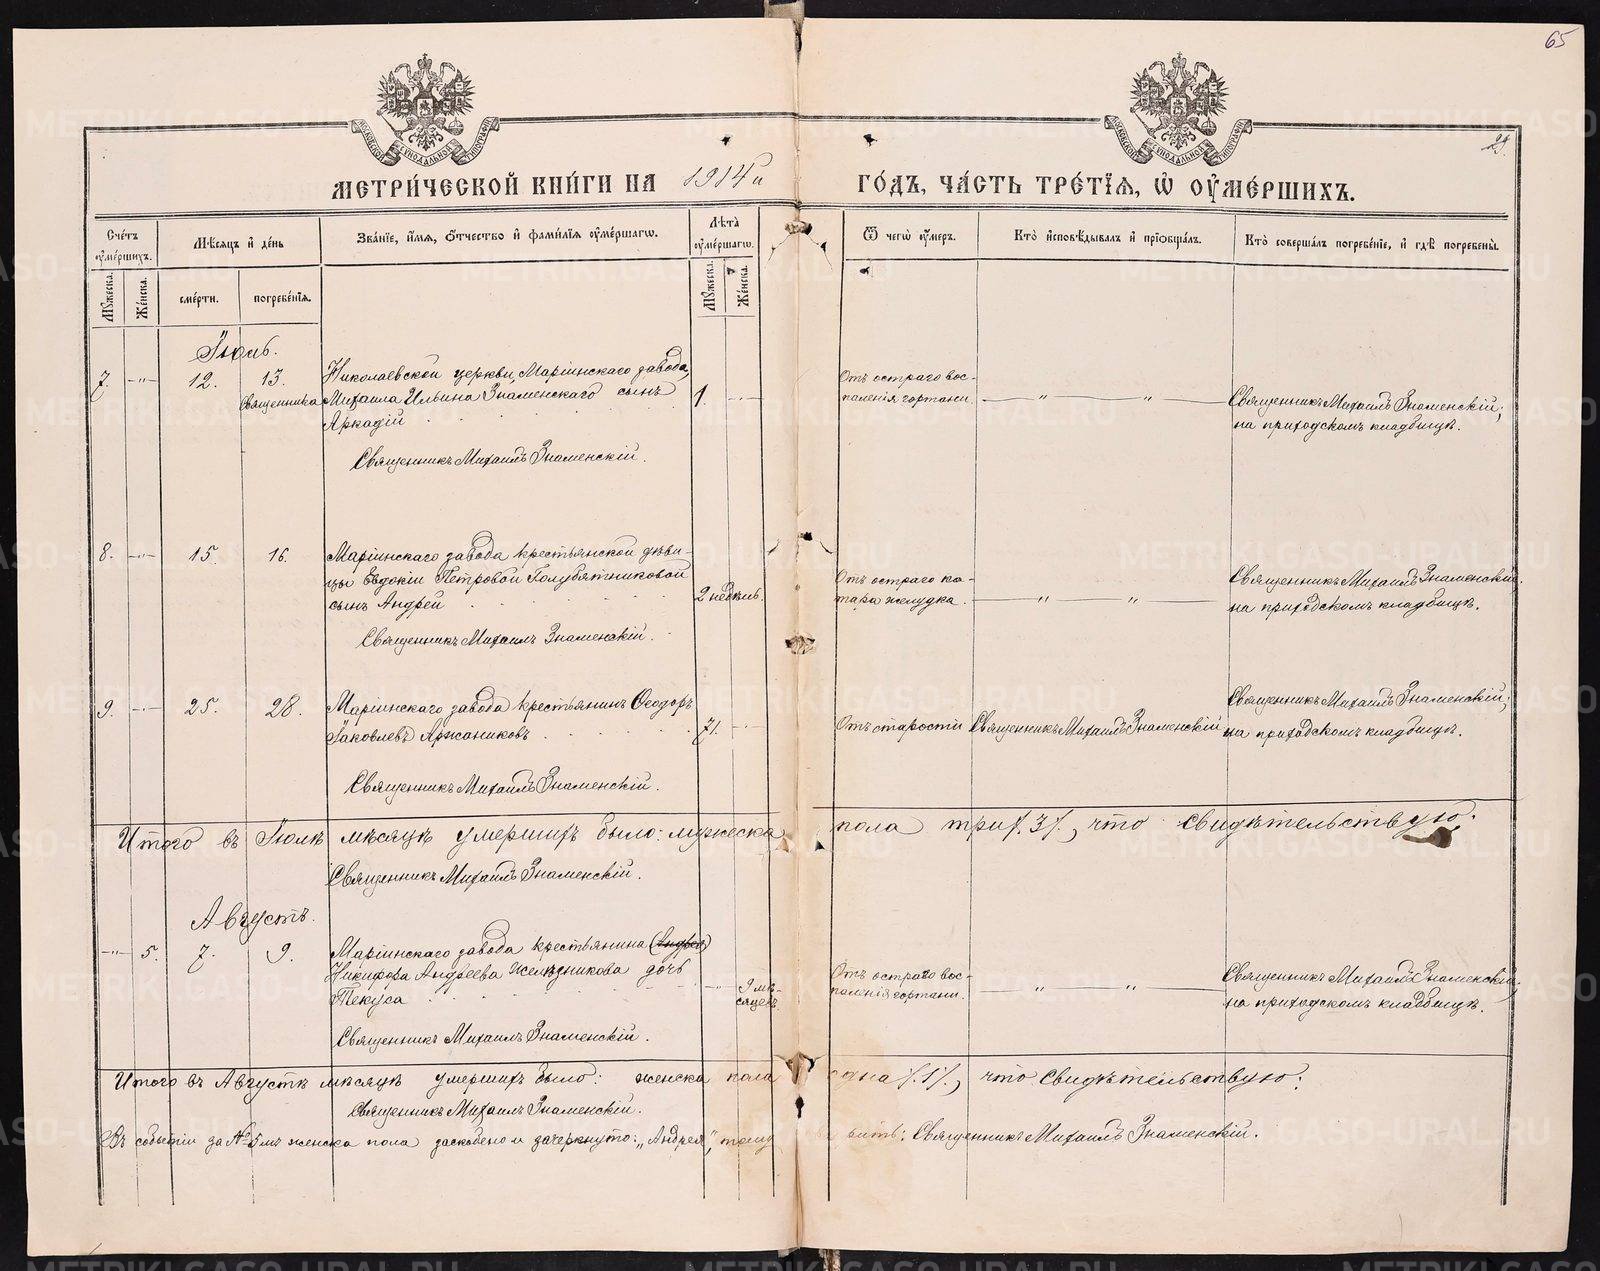 65
29.
МОСКОВСКОЙ СѴНОДАЛЬНОЙ ТИПОГРАФІИ
МОСКОВСКОЙ СѴНОДАЛЬНОЙ ТИПОГРАФІИ
МЕТРИ́ЧЕСКОЙ КНИ́ГИ НА 1914й ГО́ДЪ, ЧА́СТЬ ТРЕ́ТІѦ, Ѡ҆ ОУ҆МЕ́РШИХЪ.
Сче́тъ оу҆ме́ршихъ.
Мꙋ́жеска.
Же́нска.
Мѣ́сѧцъ и҆ де́нь
сме́рти.
погребе́нїѧ.
Зва́нїе, и҆́мѧ, ѻ҆́тчество и҆ фами́лїѧ оу҆ме́ршагѡ.
Лѣ́та оу҆ме́ршагѡ.
Мꙋ́жеска.
Же́нска.
Ѿ чегѡ̀ оу҆́меръ.
Кто̀ и҆сповѣ́дывалъ и҆ прїѡбща́лъ.
Кто̀ соверша́лъ погребе́нїе, и҆ гдѣ̀ погребены̀.
Іюль.
7. -"- 12. 13. Николаевской церкви, Маріинскаго завода,
Священника Михаила Ильина Знаменскаго сынъ 1. - -
Аркадій
Священникъ Михаилъ Знаменскій.
Отъ остраго вос-
паленія гортани. " "
Священникъ Михаилъ Знаменскій;
на приходскомъ кладбищѣ.
8. -"- 15. 16. Маріинскаго завода крестьянской дѣви-
цы Евдокіи Петровой Голубятниковой
сынъ Андрей 2 недѣль.
Священникъ Михаилъ Знаменскій.
Отъ остраго ка-
тара желудка. " "
Священникъ Михаилъ Знаменскій;
на приходскомъ кладбищѣ.
9. -"- 25. 28. Маріинскаго завода крестьянинъ Ѳеодоръ
Іаковлевъ Аржанниковъ 71. - -
Священникъ Михаилъ Знаменскій.
Отъ старости Священникъ Михаилъ Знаменскій
Священникъ Михаилъ Знаменскій;
на приходскомъ кладбищѣ.
Итого въ Іюлѣ мѣсяцѣ умершихъ было: мужеска пола три /.3/., что свидѣтельствую:
Священникъ Михаилъ Знаменскій.
Августъ.
-"- 5. 7. 9. Маріинскаго завода крестьянина (Андрея)
Никифора Андреева Желѣзникова дочь
Ѳекуса - 9 мѣ-
сяцевъ
Священникъ Михаилъ Знаменскій.
Отъ остраго вос-
паленія гортани. " "
Священникъ Михаилъ Знаменскій;
на приходскомъ кладбищѣ.
Итого въ Августѣ мѣсяцѣ умершихъ было: женска пола одна /.1/., что свидѣтельствую:
Священникъ Михаилъ Знаменскій.
Въ событіи за № 5мъ женска пола заскоблено и зачеркнуто: „Андрея", тому вѣрить: Священникъ Михаилъ Знаменскій.
METRIKI.GASO-URAL.RU